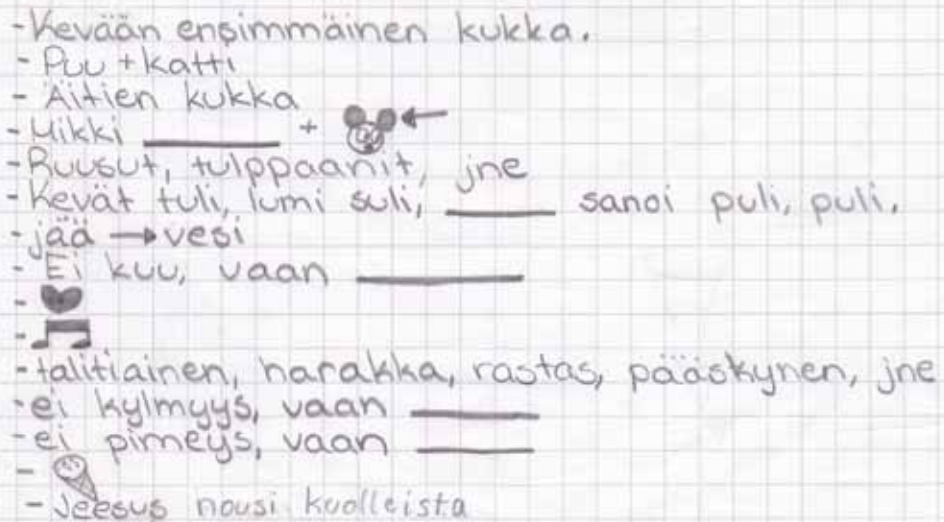 - Kevään ensimmäinen kukka.
- Puu + katti
- Äitien kukka
- Mikki ______ +
- Ruusut, tulppaanit, jne
- Kevät tuli, lumi suli, ______ sanoi puli, puli.
- jää → vesi
- Ei kuu, vaan ______
-
-
- talitiainen, harakka, rastas, pääskynen, jne
- ei kylmyys, vaan ______
- ei pimeys, vaan ______
-
- Jeesus nousi kuolleista